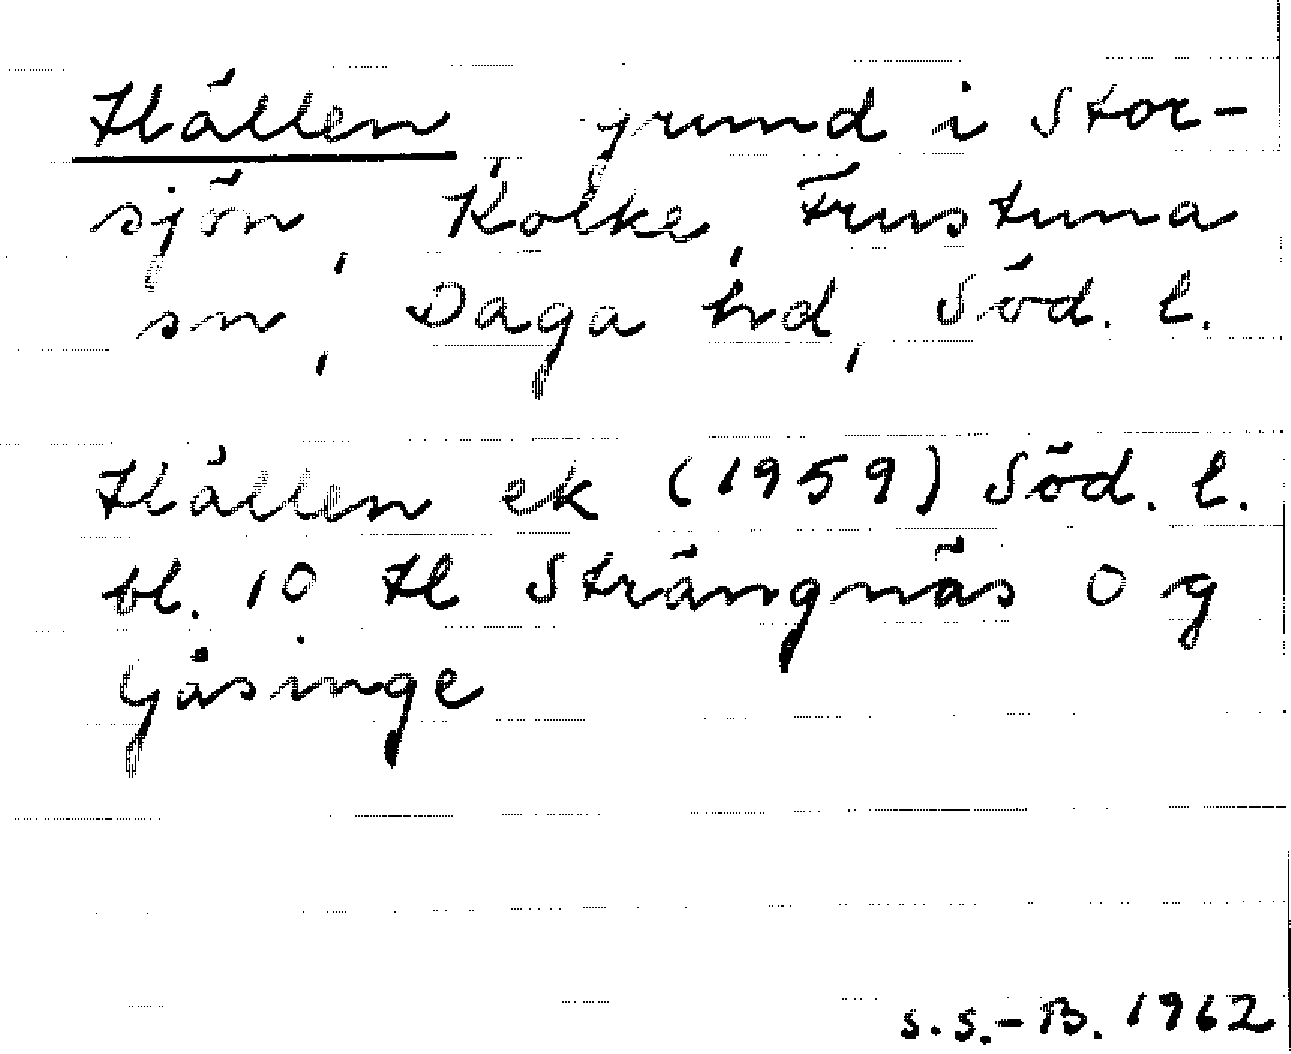 Hällen, grund i Stor-
sjön, Kolke, Frustuna
sn, Daga hd, Söd. l.
Hällen ek (1959) Söd. l.
bl. 10 H Strängnäs O g
Gåsinge
s.s.-B. 1962